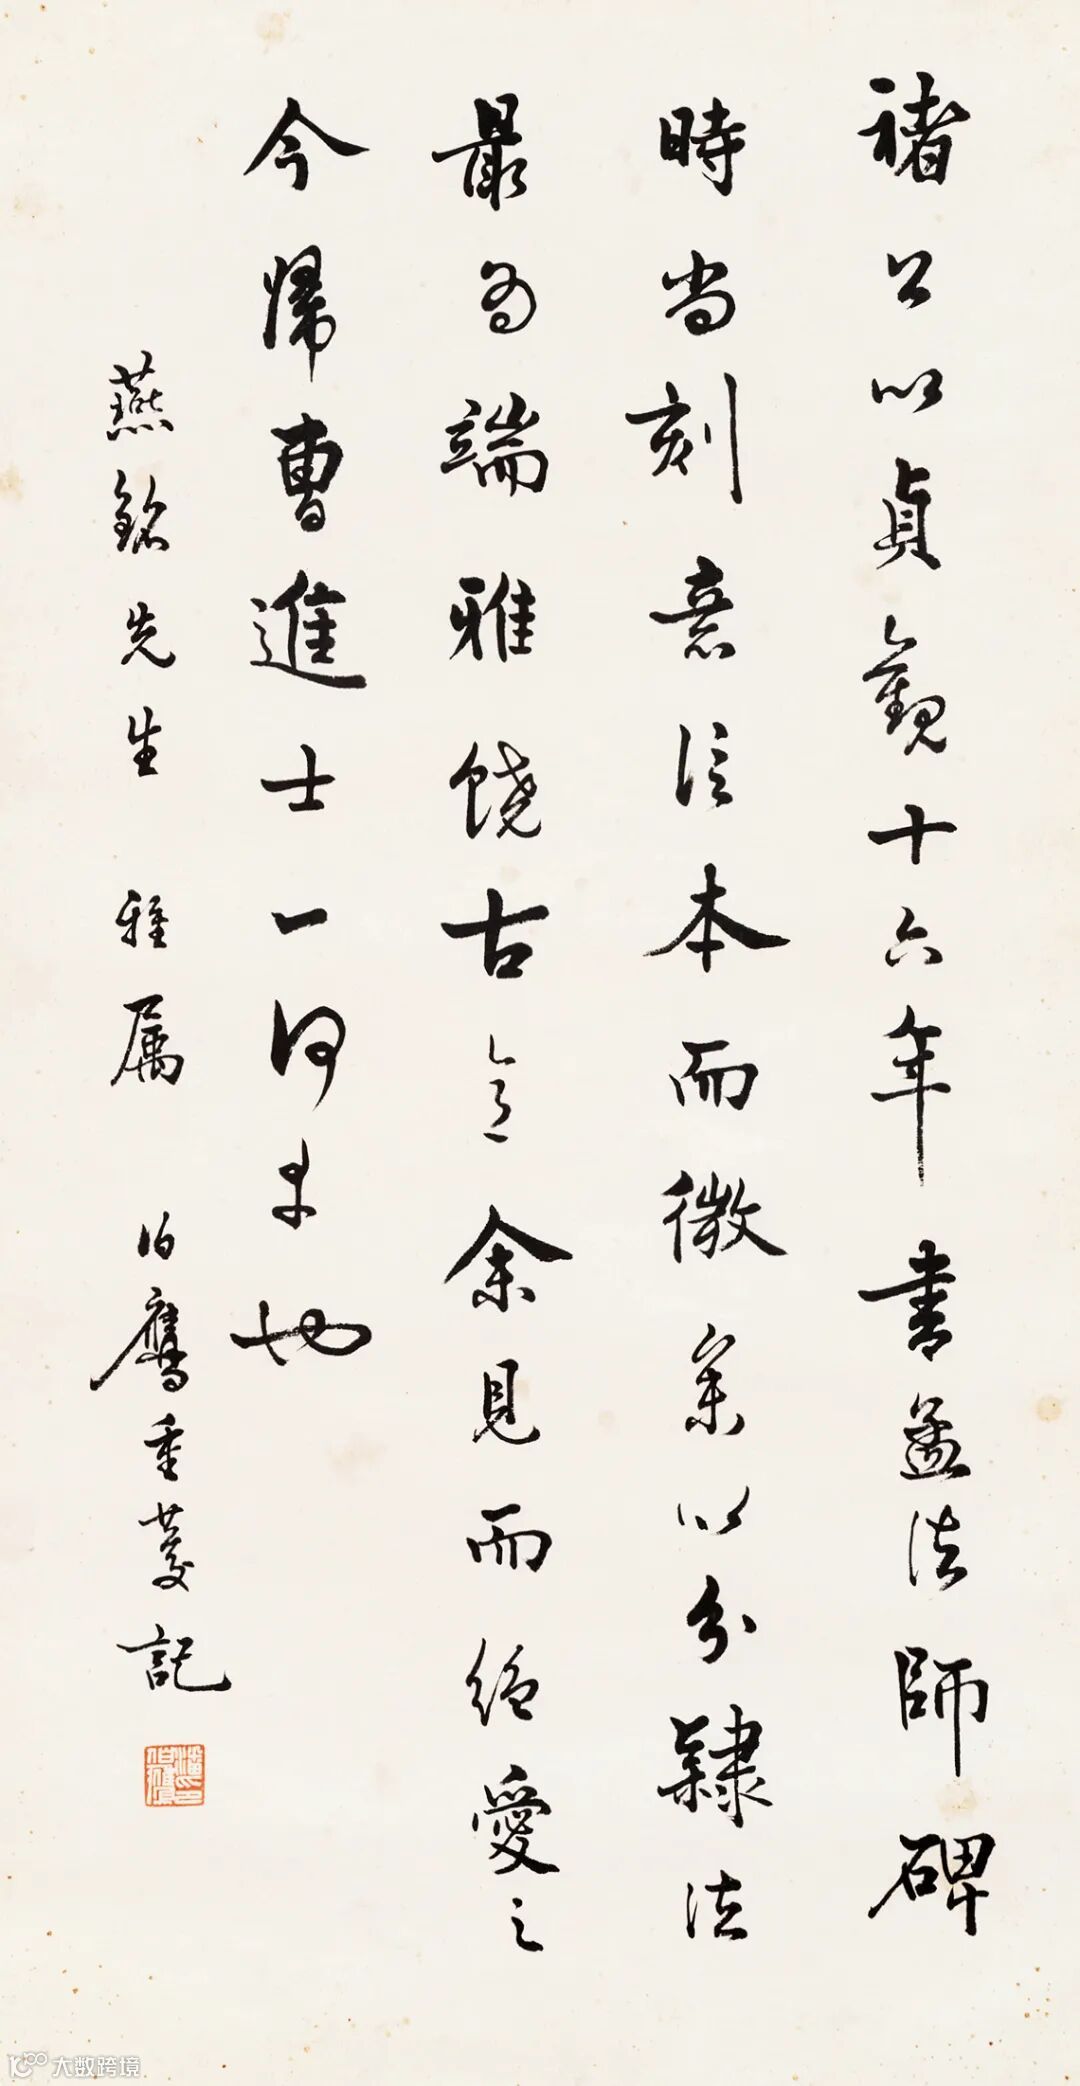 褚公以貞觀十六年書孟法師碑
時尚刻意信本而微參以分隸法
最為端雅饒古意余見而絕愛之
今歸曹進士一何幸也
燕銘先生 雅属 伯鷹重菱記
潘伯鷹印
大数跨境